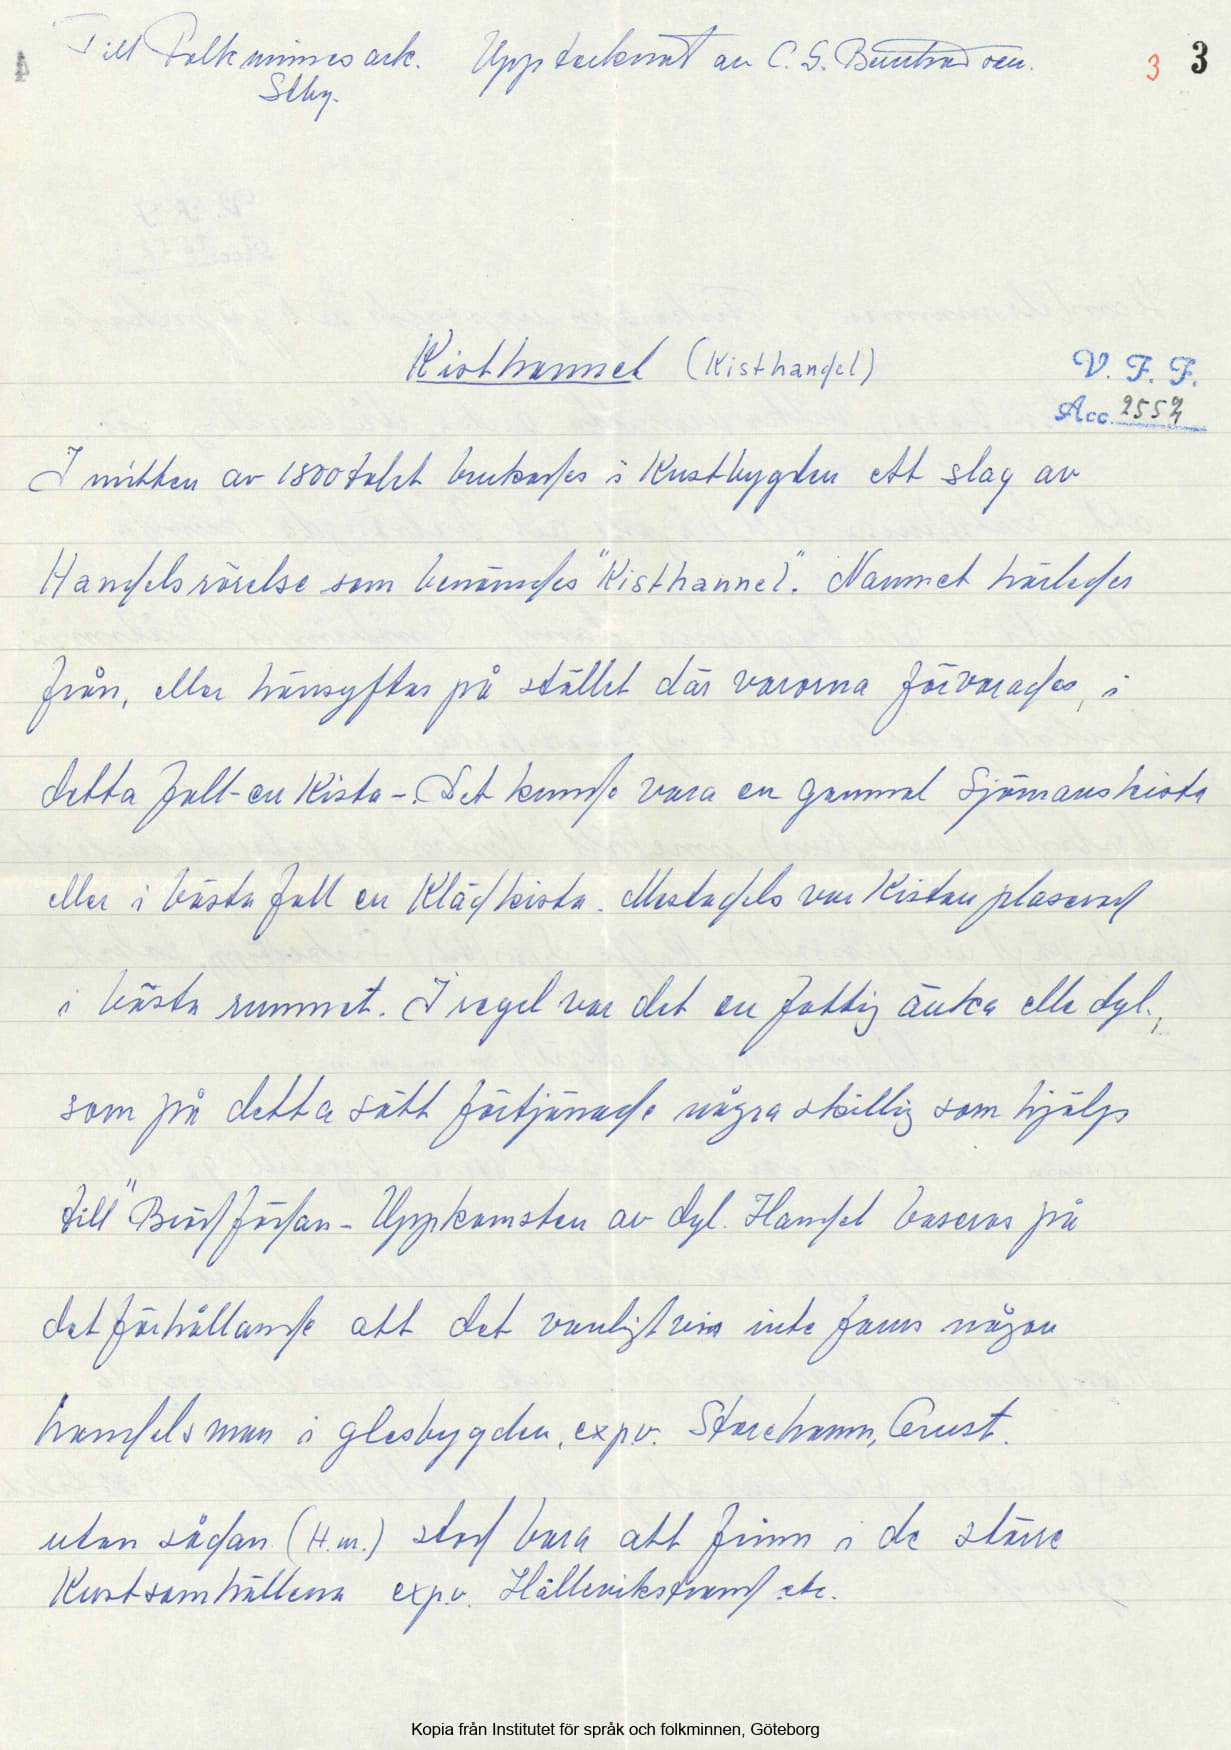 Till Folkminnesark. Upptecknat av C. G.
Sthg.
3 3
Kisthannel (Kisthandel)
V. F. F.
Acc. 2557
I mitten av 1800talet brukades i Kustbygden ett slag av
Handelsrörelse som benämdes "Kisthannel". Namnet härledes
från, eller hänsyftas på stället där varorna förvarades, i
detta fall - en Kista -. Det kunde vara en gammal Sjömanskista
eller i bästa fall en Klädkista. Mestadels var Kistan plaserad
i bästa rummet. I regel var det en fattig änka elle dyl.,
som på detta sätt förtjänade några skillig som hjälp
till "Brödfödan - Uppkomsten av dyl. Handel baseras på
det förhållande att det vanligtvis inte fanns någon
handelsman i glesbygden, expv. Starehamn, Orust.
utan sådan (H.m.) stod bara att finna i de större
Kustsamhällena expv. Hälleviksstrand etc.
Kopia från Institutet för språk och folkminnen, Göteborg